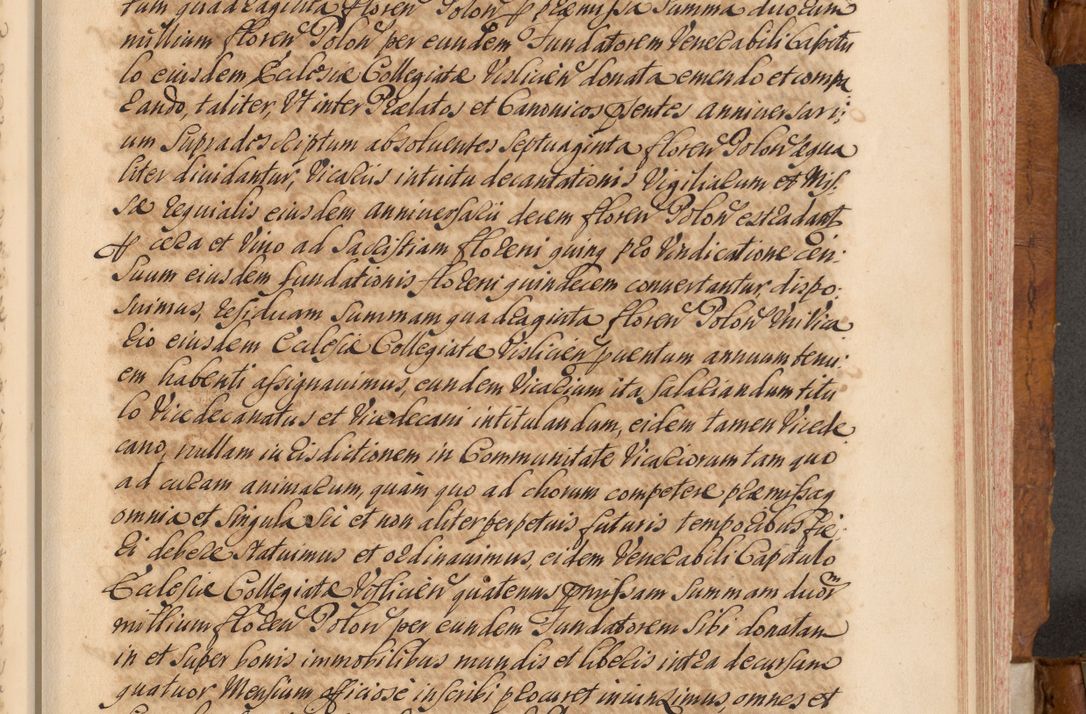 tum quadraginta floren Polon p præmissa Summa duorum
millium floren Polon per eundem Fundatorem Venerabili Capitu
lo eiusdem Ecclesiæ Collegiatæ Vislicien donata emendo et compa
rando, taliter, Vt inter Prælatos et Canonicos psentes anniuersari:
um Supradescriptum absoluentes Septuaginta floren Polon æqua
liter diuidantur, Vicariis intuitu decantationis Vigiliarum et Mis:
sæ requialis eiusdem anniuersarii decem floren Polon extradant
p cera et Vino ad Sacristiam floreni quinq pro Vindicatione cen:
suum eiusdem fundationis floreni quindecem conuertantur dispo:
suimus, residuam Summam quadraginta floren Polon Vni Vica
rio eiusdem Ecclesiæ Collegiatæ Vislicien puentum annuum tenu:
em habenti assignauimus, eundem Vicarium ita salariandum titu
lo Vicedecanatus et Vicedecani intitulandum, eidem tamen Vicede
cano, nullam iurisdictionem in Communitate Vicariorum tam quo
ad curam animarum, quàm quo ad chorum competere præmissaq
omnia et Singula Sic et non aliter perpetuis futuris temporibus fie:
ri debere Statuimus et ordinauimus, eidem Venerabili Capitulo
Ecclesiæ Collegiatæ Vislicien quatenus pmissam Summam duor
millium floren Polon per eundem Fundatorem Sibi donatam
in et super bonis immobilibus mundis et liberis intra decursum
quatuor Mensium officiose inscribi procuret iniunximus, omnes et